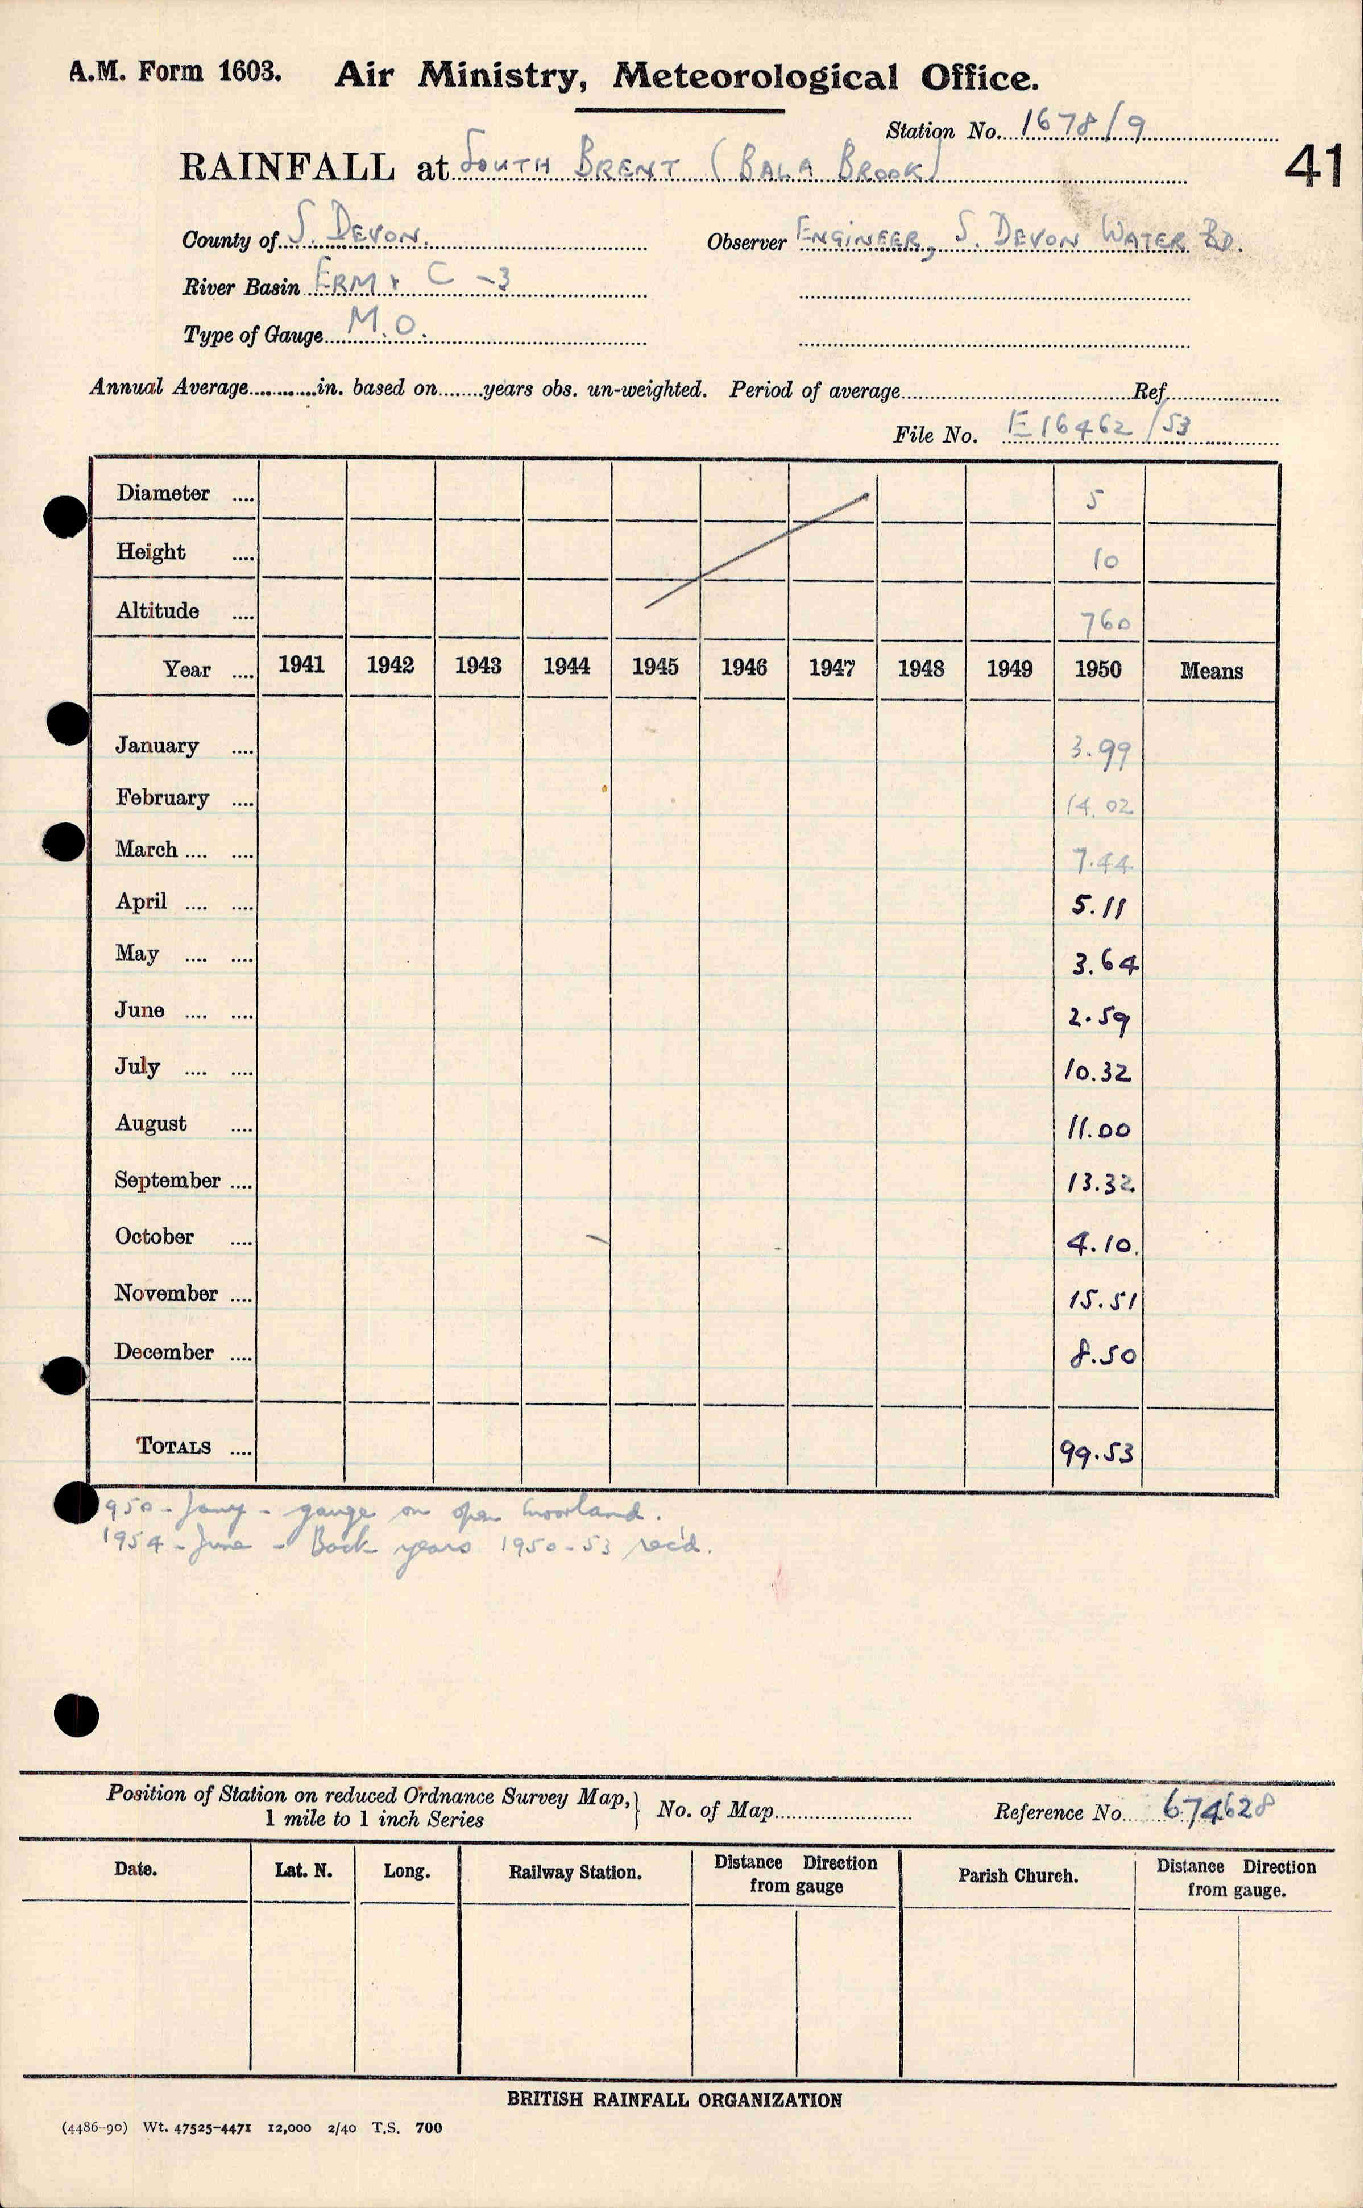 A.M. Form 1603. Air Ministry, Meteorological Office.
Station No. 1678/9
41
RAINFALL at SOUTH BRENT (BALA BROOK)
County of S. DEVON. Observer ENGINEER, S. DEVON WATER BD.
River Basin ERM + C -3
Type of Gauge M.O.
Annual Average ............ in. based on ........ years obs. un-weighted. Period of average ............ Ref. ............
File No. E16462/53
Diameter .... 5
Height .... 10
Altitude .... 760
Year .... 1941 1942 1943 1944 1945 1946 1947 1948 1949 1950 Means
January .... 3.99
February .... 14.02
March .... .... 7.44
April .... .... 5.11
May .... .... 3.64
June .... .... 2.59
July .... .... 10.32
August .... 11.00
September .... 13.32
October .... 4.10.
November .... 15.51
December .... 8.50
TOTALS .... 99.53
950 - Jany - gauge on open moorland.
1954 - June - Back years 1950-53 rec'd.
Position of Station on reduced Ordnance Survey Map, } No. of Map ............ Reference No. 674628
1 mile to 1 inch Series
Date. Lat. N. Long. Railway Station. Distance Direction from gauge Parish Church. Distance Direction from gauge.
BRITISH RAINFALL ORGANIZATION
(4486-90) Wt. 47525-4471 12,000 2/40 T.S. 700